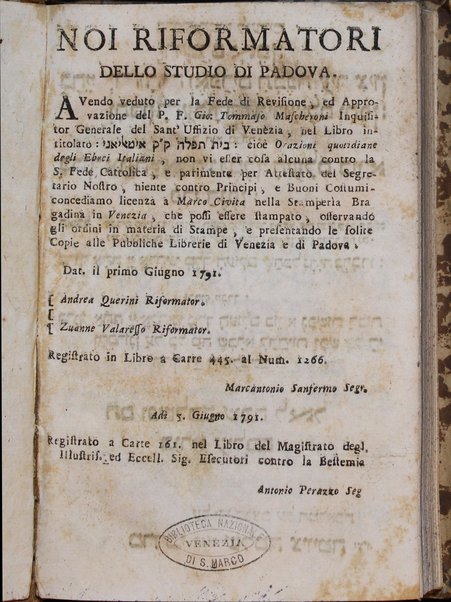 NOI RIFORMATORI
DELLO STUDIO DI PADOVA.
AVendo veduto per la Fede di Revisione, ed Appro-
vazione del P. F. Gio: Tommaso Mascheroni Inquisi-
tor Generale del Sant' Uffizio di Venezia, nel Libro in-
titolato: בית תפלה ק״ק איטליאני: cioè Orazioni quotidiane
degli Ebrei Italiani, non vi esser cosa alcuna contro la
S. Fede Cattolica, e parimente per Attestato del Segre-
tario Nostro, niente contro Principi, e Buoni Costumi-
concediamo licenza a Marco Civita nella Stamperia Bra
gadina in Venezia, che possi essere stampato, osservando
gli ordini in materia di Stampe, e presentando le solite
Copie alle Pubbliche Librerie di Venezia e di Padova.
Dat. il primo Giugno 1791.
[ Andrea Querini Riformator.
[
[ Zuanne Valaresso Riformator.
Registrato in Libro a Carre 445. al Num. 1266.
Marcantonio Sanfermo Segr.
Adì 5. Giugno 1791.
Registrato a Carte 161. nel Libro del Magistrato degl.
Illustris. ed Eccell. Sig. Esecutori contro la Bestemia
Antonio Perazzo Seg
BIBLIOTECA NAZIONALE
VENEZIA
DI S. MARCO